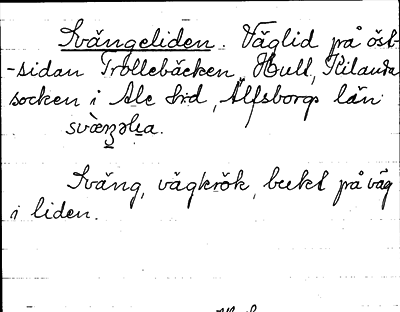 Svängeliden. Väglid på öst-
-sidan Trollebäcken, Hult, Kilanda
socken i Ale hd, Älfsborgs län
Sväng, vägkrök, bukt på väg
i liden.